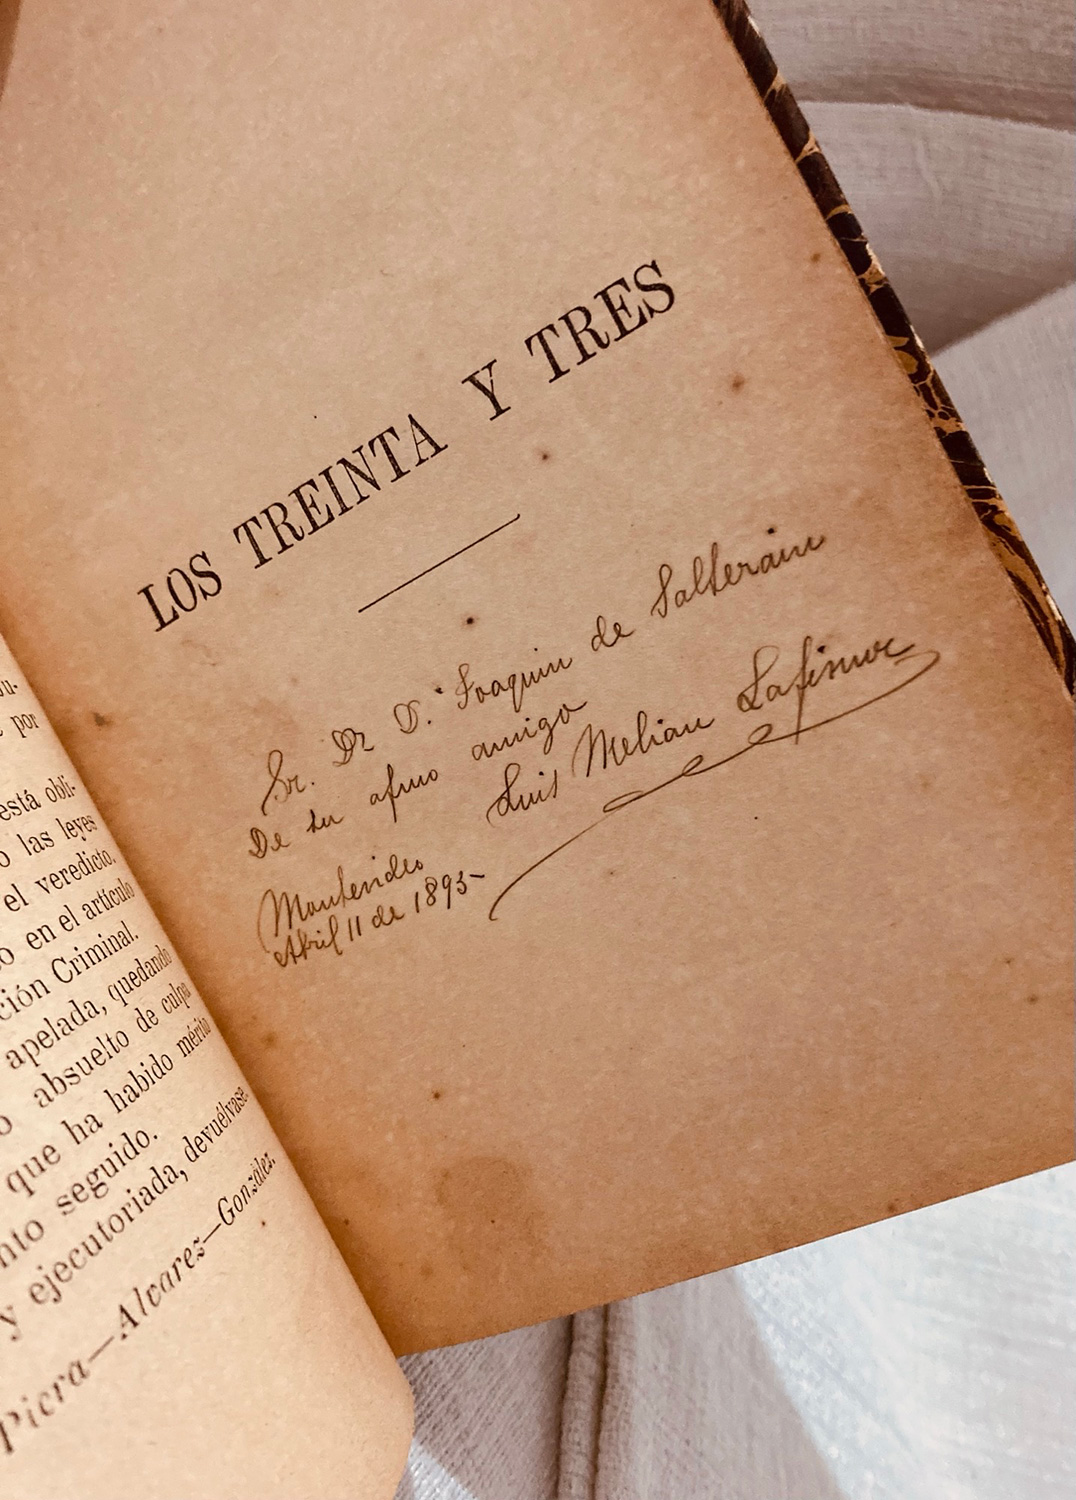 u-
por
está obli-
o las leyes
el veredicto.
o en el artículo
ción Criminal.
apelada, quedando
o absuelto de culpa
que ha habido mérito
nto seguido.
y ejecutoriada, devuélvase.
Piera—Alvarez—González.
LOS TREINTA Y TRES
Sr. Dr D. Joaquin de Salterain
De su afmo amigo
Luis Melian Lafinur
Montevideo
Abril 11 de 1895-